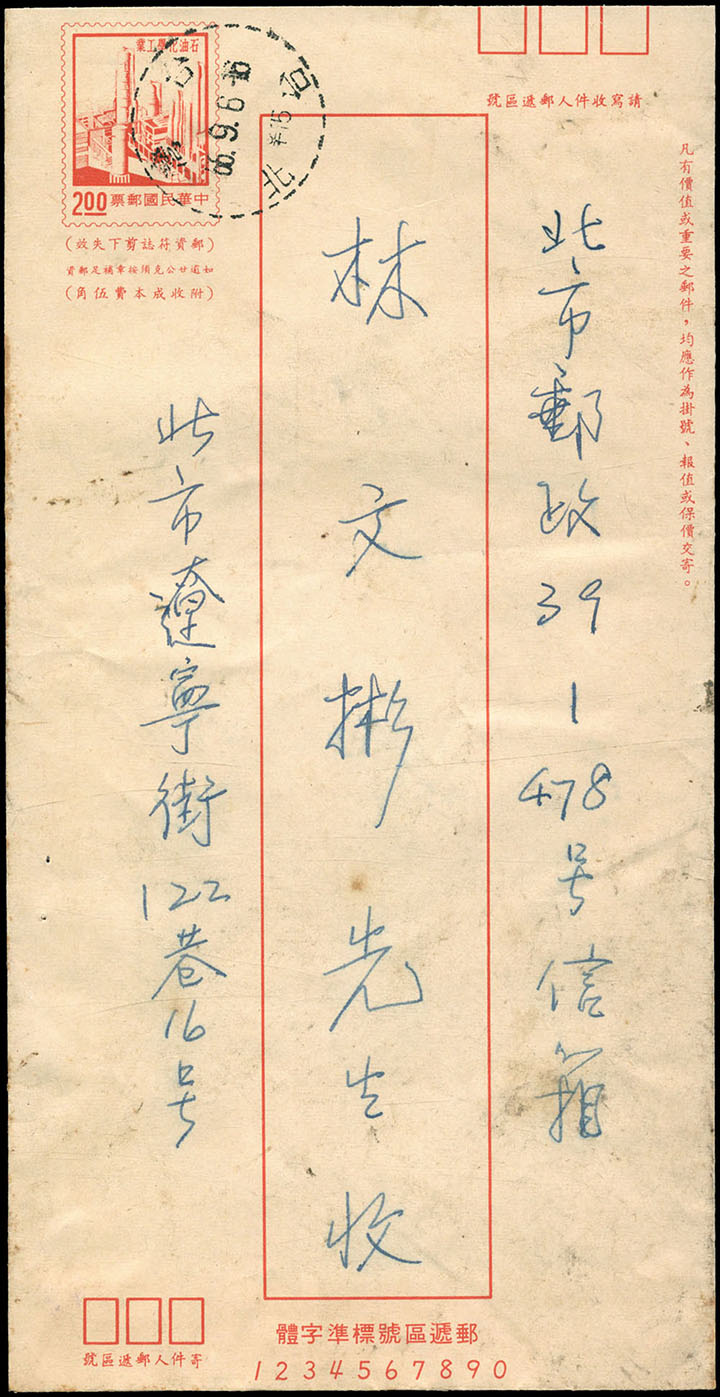 石油化學工業
中華民國郵票 2.00
(郵資符誌剪下失效)
如逾廿公克須按章補足郵資
(附收成本費伍角)
台北
請寫收件人郵遞區號
凡有價值或重要之郵件，均應作為掛號、報值或保價交寄。
北市郵政39-478号信箱
林文彬先生收
北市遼寧街122巷16号
郵遞區號標準字體
1234567890
寄件人郵遞區號